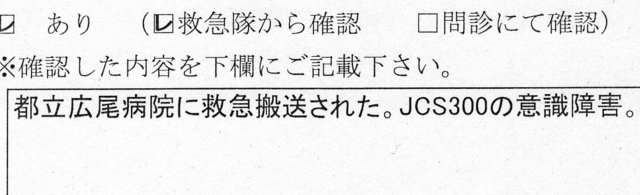 ☑ あり （☑救急隊から確認 □問診にて確認）
※確認した内容を下欄にご記載下さい。
都立広尾病院に救急搬送された。JCS300の意識障害。